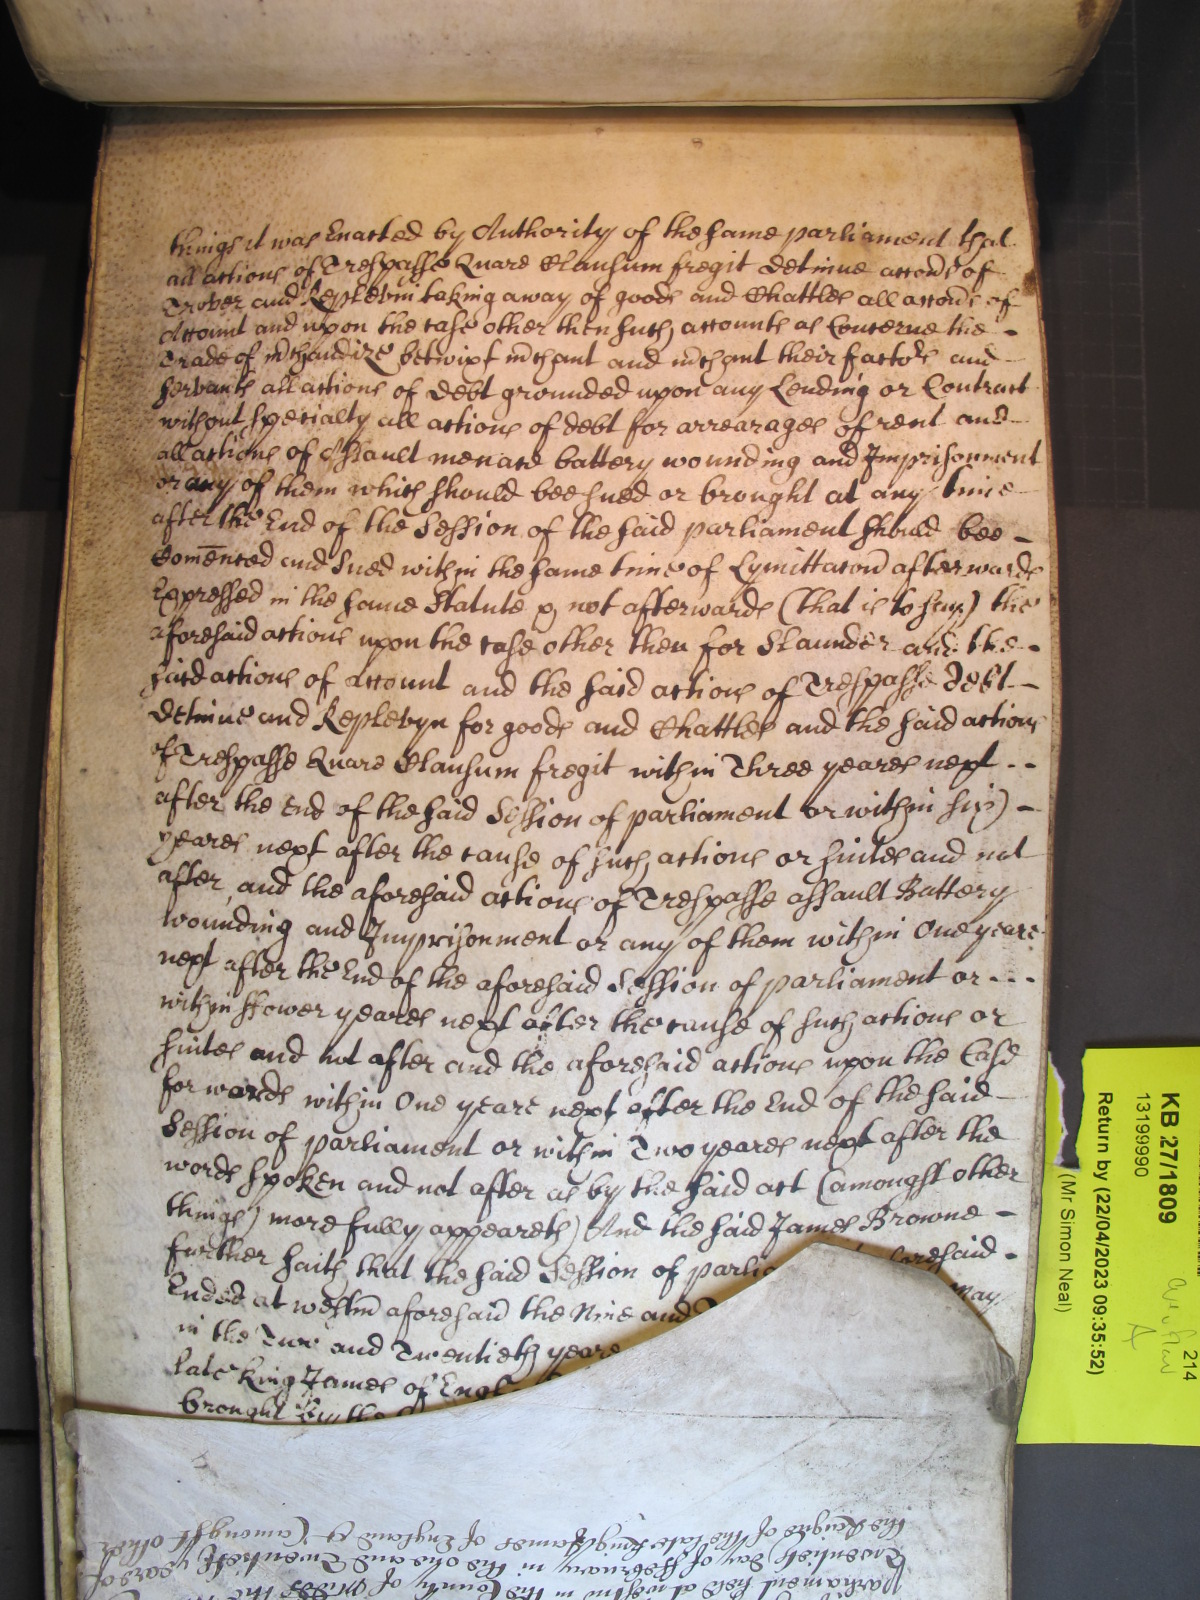 things it was Enacted by Authority of the same parliament that
all actions of Trespasse Quare Clausum fregit detinue accons of
Trover and Replevin taking away of goods and Chattles all accons of
Account and upon the case other then such accounts as Concerne the -
Trade of mchandize betwixt mchant and mchant their factors and
servants all actions of debt grounded upon any Lending or Contract
without specialty all actions of debt for arrearages of rent and
all actions of Assault menace battery wounding and Imprisonment
or any of them which should bee sued or brought at any time
after the End of the Session of the said parliament should bee -
Comenced and Sued within the same time of Lymittacon afterwards
Expressed in the same Statute & not afterwards (that is to say) the
aforesaid actions upon the case other then for Slaunder and the -
said actions of account and the said actions of Trespasse debt -
Detinue and Replevyn for goods and Chattles and the said actions
of Trespasse Quare Clausum fregit within Three yeares next - -
after the End of the said Session of parliament or within six -
yeares next after the cause of such actions or suites and not
after, and the aforesaid actions of Trespasse assault Battery
wounding and Imprisonment or any of them within One yeare
next after the End of the aforesaid Session of parliament or - - -
within ffower yeares next after the cause of such actions or
suites and not after and the aforesaid actions upon the Case
for words within One yeare next after the End of the said
Session of parliament or within Two yeares next after the
words spoken and not after as by the said act (amongst other
things) more fully appeareth) And the said James Browne -
further saith that the said Session of
Ended at westm aforesaid the Nine and May
in the Two and Twentieth yeare
late King James of
brought
the Reigne of the late King James of England &c (amongst other
Twentieth day of ffebruary in the one and Twentieth yeare of
parliament held at westm in the County of Midds the
KB 27/1809
13199990
Return by (22/04/2023 09:35:52)
(Mr Simon Neal)
214